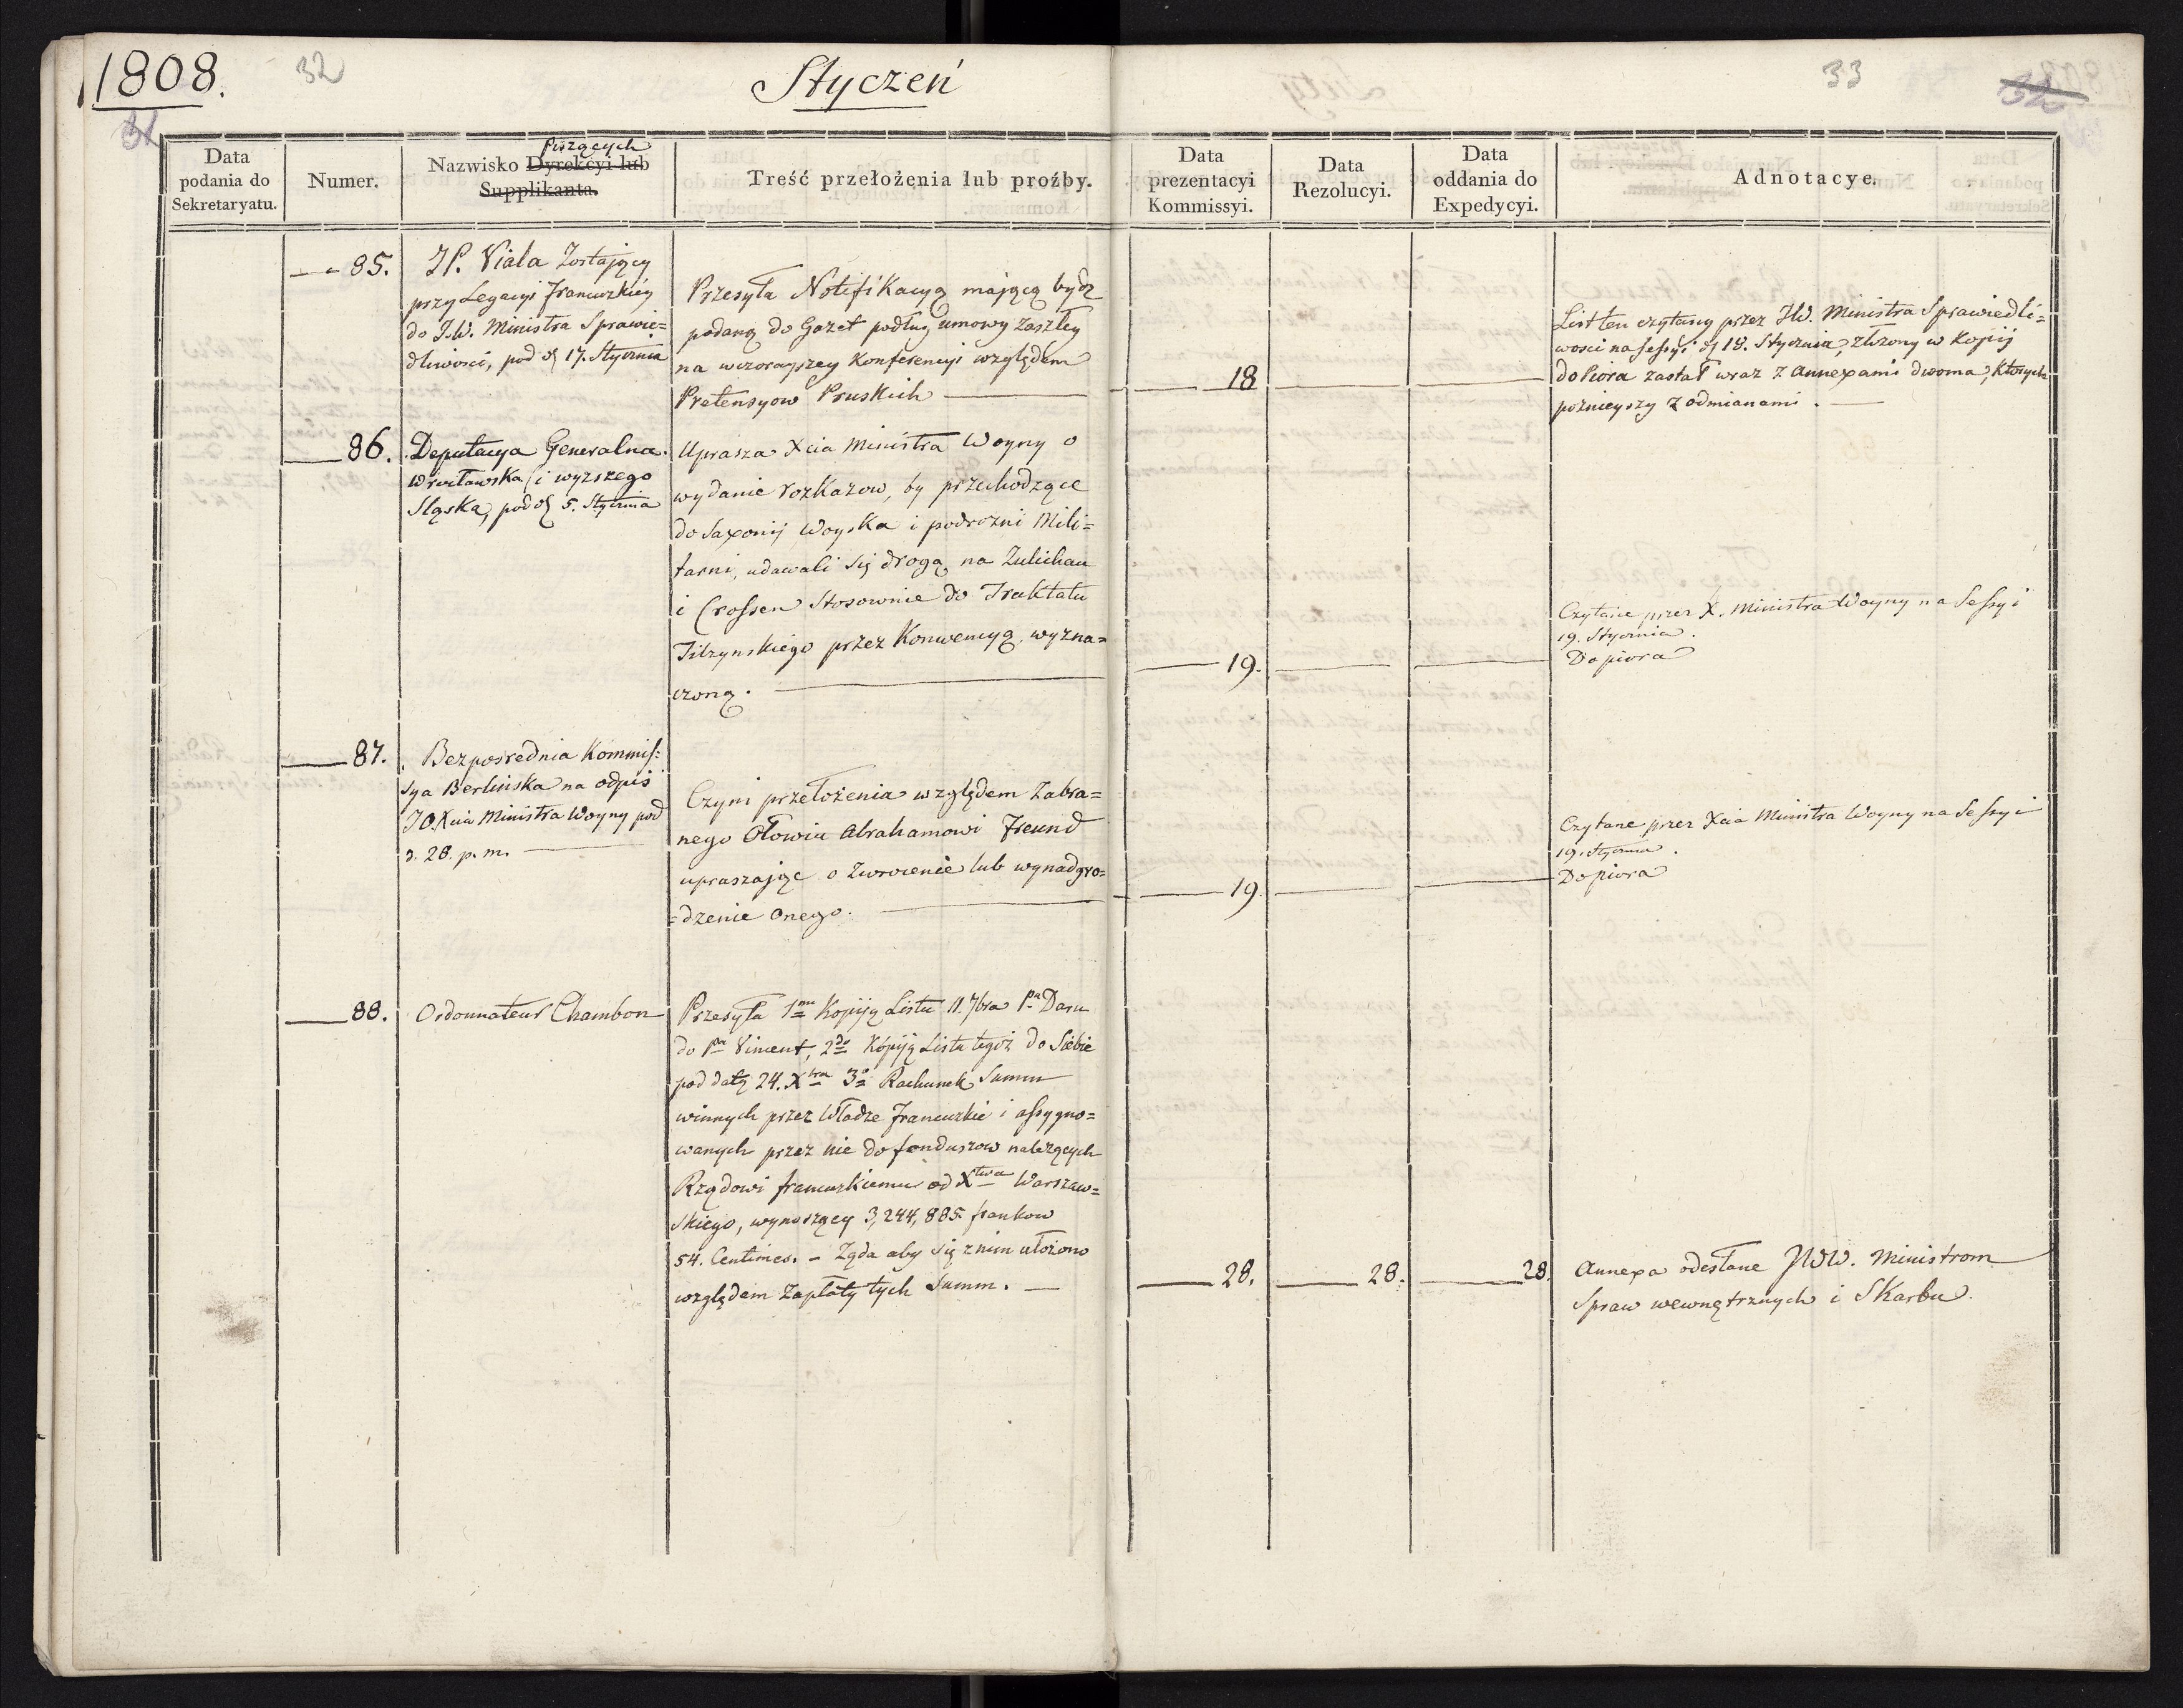 1808.
32
Styczeń
33
32
31
Data
podania do
Sekretaryatu.
Numer.
Piszących
Nazwisko Dyrekcyi lub
Supplikanta.
Treść przełożenia lub proźby.
Data
prezentacyi
Kommissyi.
Data
Rezolucyi.
Data
oddania do
Expedycyi.
Adnotacye.
85.
JP. Viala Zostaiący
przy Legacyi Francuzkiéy
do J.W. Ministra Sprawie=
dliwości, pod d. 17. Stycznia
Przesyła Notifikacyą maiącą bydz
podaną do Gazet podług umowy zaszłey
na wczorayszey Konferencyi względem
Pretensyow Pruskich
18
List ten czytany przez JW. Ministra Sprawiedli=
wosci na Sessyi d. 18. Stycznia, złożony w Kopij
do Piora został wraz z Annexami dwoma, Ktorych
poźnieyszy z odmianami.
86.
Deputacya Generalna
Wrocławska i wyzszego
Sląska, pod d. 5. Stycznia
Uprasza Xcia Ministra Woyny o
wydanie rozkazow, by przechodzące
do Saxonij Woyska i podrozni Mili=
tarni, udawali się drogą na Zulichau
i Crossen Stosownie do Traktatu
Tilzynskiego przez Konwencyą wyzna=
czoną.
19.
Czytane przez X. Ministra Woyny na Sessyi
19. Stycznia.
Do piora
87.
Bezposrednia Kommis=
sya Berlinska na odpis
JO. Xcia Ministra Woyny pod
d. 28. p. m.
Czyni przełożenia względem Zabra=
nego Ołowiu Abrahamowi Freund
upraszaiąc o Zwrocenie lub wynadgro=
=dzenie onego.
19.
Czytane przez Xcia Ministra Woyny na Sessyi
19. Stycznia.
Do piora
88.
Ordonnateur Chambon
Przesyła 1mo Kopiją Listu 11. 7bra Pa Daru
do Pa Vincent, 2do Kopiją Listu tegoż do Siebie
pod datą 24. Xbra 3o Rachunek Summ
winnych przez Władze francuzkie i assygno=
wanych przez nie do funduszow nalezących
Rządowi francuzkiemu od Xtwa Warszaw=
skiego, wynoszący 3,244,885 frankow
54. Centimes. - Ząda aby się z nim ułożono
względem Zapłaty tych Summ.
28.
28.
28.
Annexa odesłane JWW. Ministrom
Spraw wewnętrznych i Skarbu.